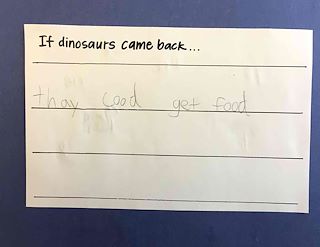 If dinosaurs came back...
thay cood get food